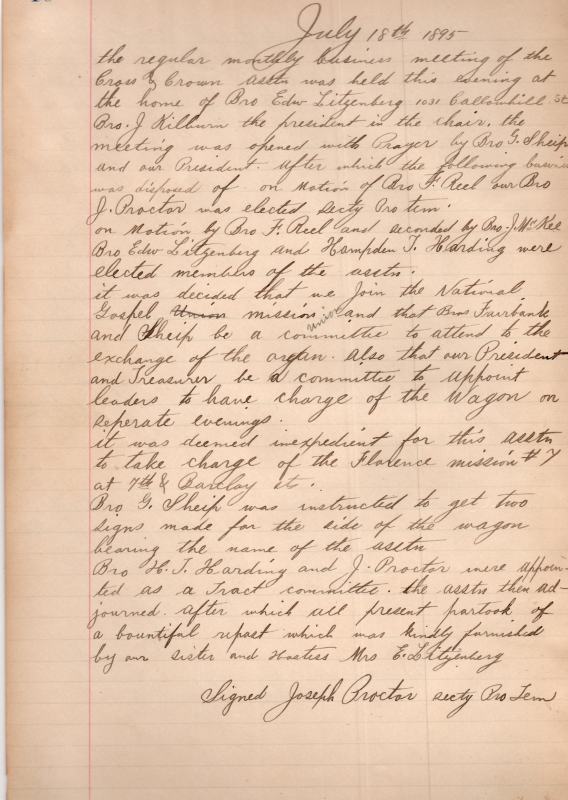 July 18th 1895
the regular monthly business meeting of the
Cross & Crown asstn was held this evening at
the home of Bro Edw Litzenberg 1031 Callowhill St
Bro. J Kilburn the president in the chair. the
meeting was opened with Prayer by Bro G. Sheip
and our President. After which the following business
was disposed of. on Motion of Bro F. Reel our Bro
J. Proctor was elected secty Pro tem.
on Motion by Bro F. Reel and seconded by Bro. J. McKee
Bro Edw Litzenberg and Hampden T. Harding were
elected members of the asstn.
it was decided that we join the National
Gospel Union mission and that Bros Fairbank
union
and Sheip be a committee to attend to the
exchange of the organ. also that our President
and Treasurer be a committee to Appoint
leaders to have charge of the Wagon on
seperate evenings.
it was deemed inexpedient for this asstn
to take charge of the Florence mission #7
at 7th & Barclay st.
Bro G. Sheip was instructed to get two
signs made for the side of the wagon
bearing the name of the asstn
Bro H. T. Harding and J. Proctor were appoin-
ted as a Tract committee. the asstn then ad-
journed. after which all present partook of
a bountiful repast which was kindly furnished
by our sister and Hostess Mrs E. Litzenberg
Signed Joseph Proctor secty Pro Tem